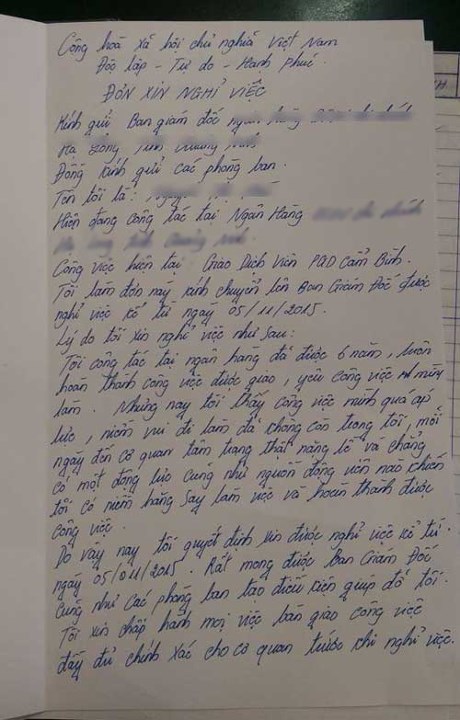 Cộng hoà xã hội chủ nghĩa Việt Nam
Độc lập - Tự do - Hạnh phúc
ĐƠN XIN NGHỈ VIỆC
Kính gửi Ban giám đốc ngân hàng
Hạ Long
Đồng kính gửi các phòng ban.
Tên tôi là:
Hiện đang công tác tại Ngân Hàng
Công việc hiện tại Giao Dịch Viên PGD Cẩm Bình.
Tôi làm đơn này kính chuyển lên Ban Giám Đốc được
nghỉ việc kể từ ngày 05/11/2015.
Lý do tôi xin nghỉ việc như sau:
Tôi công tác tại ngân hàng đã được 6 năm, luôn
hoàn thành công việc được giao, yêu công việc mình
làm. Nhưng nay tôi thấy công việc mình quá áp
lực, niềm vui đi làm đã không còn trong tôi, mỗi
ngày đến cơ quan tâm trạng thật nặng lề và chẳng
có một động lực cũng như nguồn động viên nào khiến
tôi có niềm hăng say làm việc và hoàn thành được
công việc.
Do vậy nay tôi quyết định xin được nghỉ việc kể từ
ngày 05/011/2015. Rất mong được Ban Giám Đốc
cũng như các phòng ban tạo điều kiện giúp đỡ tôi.
Tôi xin chấp hành mọi việc bàn giao công việc
đầy đủ chính xác cho cơ quan trước khi nghỉ việc.